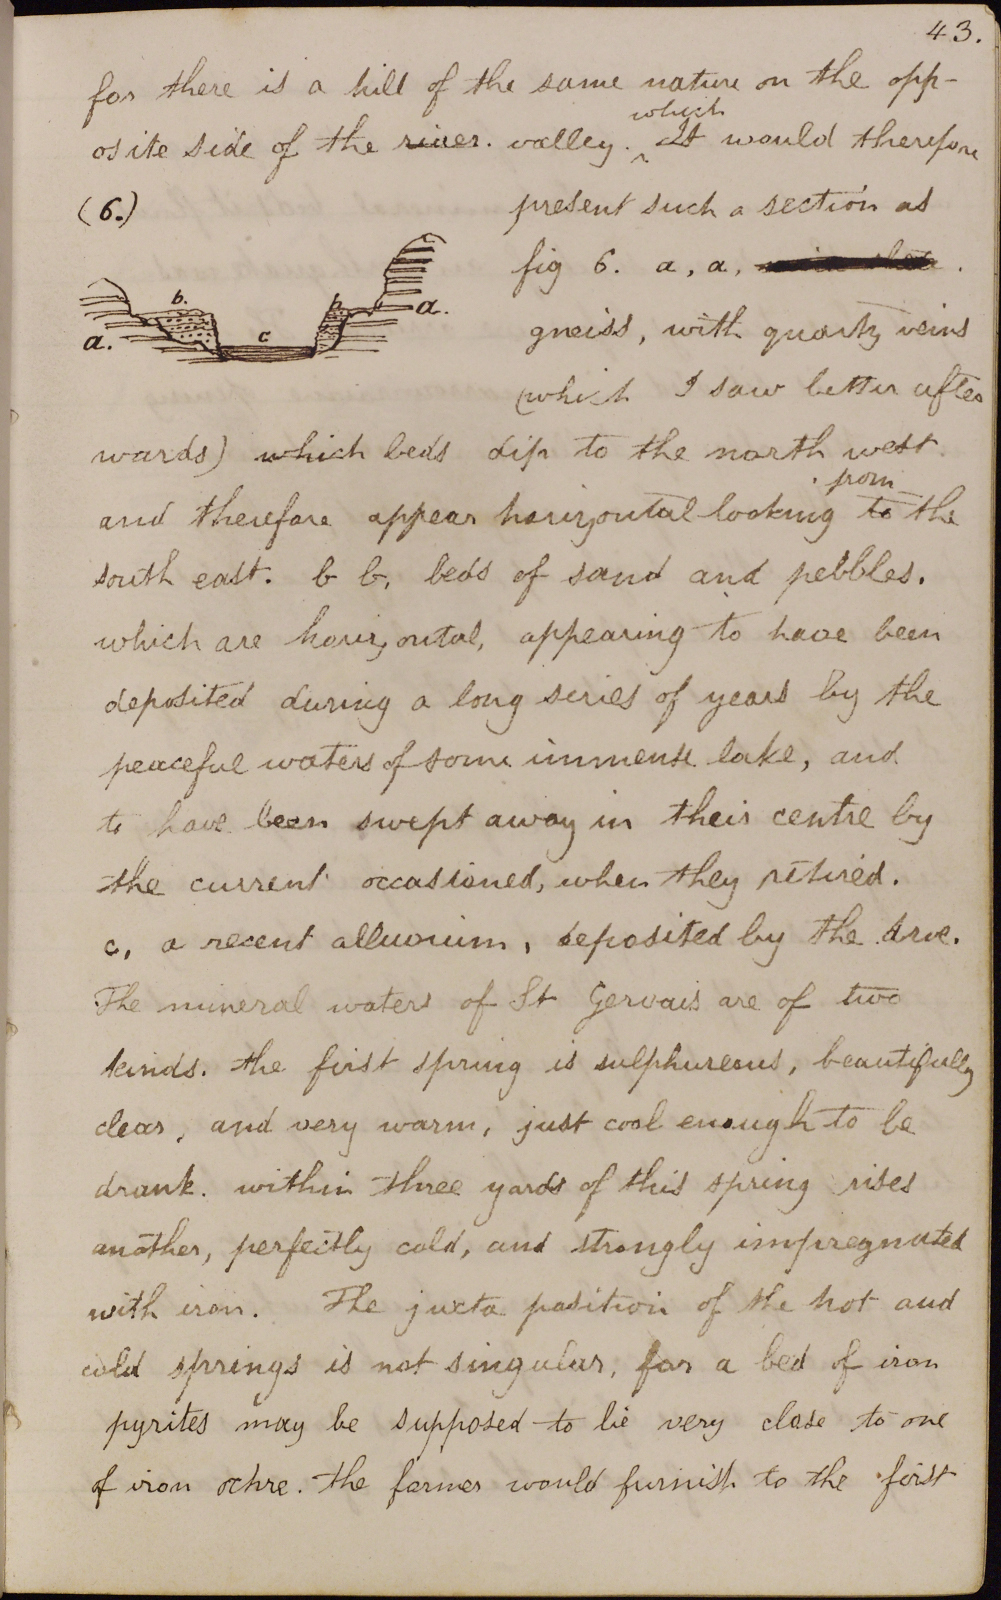 43.
for there is a hill of the same nature on the opp-
which
osite side of the river. valley. ^ It would therefore
(6.)
present such a section as
fig 6. a, a,
b.
b
a.
a.
c
gneiss, with quartz veins
(which I saw better after
wards) which beds dip to the north west.
from
and therefore appear horizontal looking to the
south east. b b, beds of sand and pebbles.
which are horizontal, appearing to have been
deposited during a long series of years by the
peaceful waters of some immense lake, and
to have been swept away in their centre by
the current occasioned, when they retired.
c, a recent alluvium, deposited by the Arve.
The mineral waters of St Gervais are of two
kinds. the first spring is sulphureous, beautifully
clear, and very warm, just cool enough to be
drank. within three yards of this spring rises
another, perfectly cold, and strongly impregnated
with iron. The juxta position of the hot and
cold springs is not singular, for a bed of iron
pyrites may be supposed to lie very close to one
of iron ochre. the former would furnish to the first